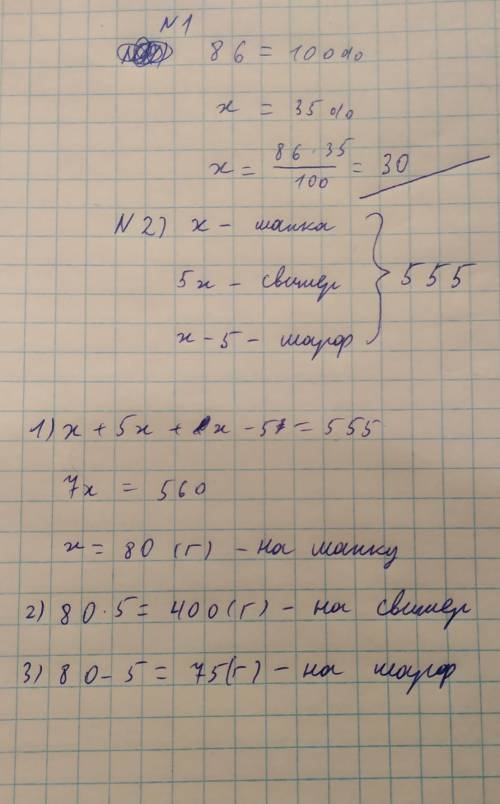 N1
86 = 100%
x = 35%
x = 86 · 35 / 100 = 30
N2) x - шапка
5x - свитер
x - 5 - шарф
} 555
1) x + 5x + x - 5 = 555
7x = 560
x = 80 (г) - на шапку
2) 80 · 5 = 400 (г) - на свитер
3) 80 - 5 = 75 (г) - на шарф